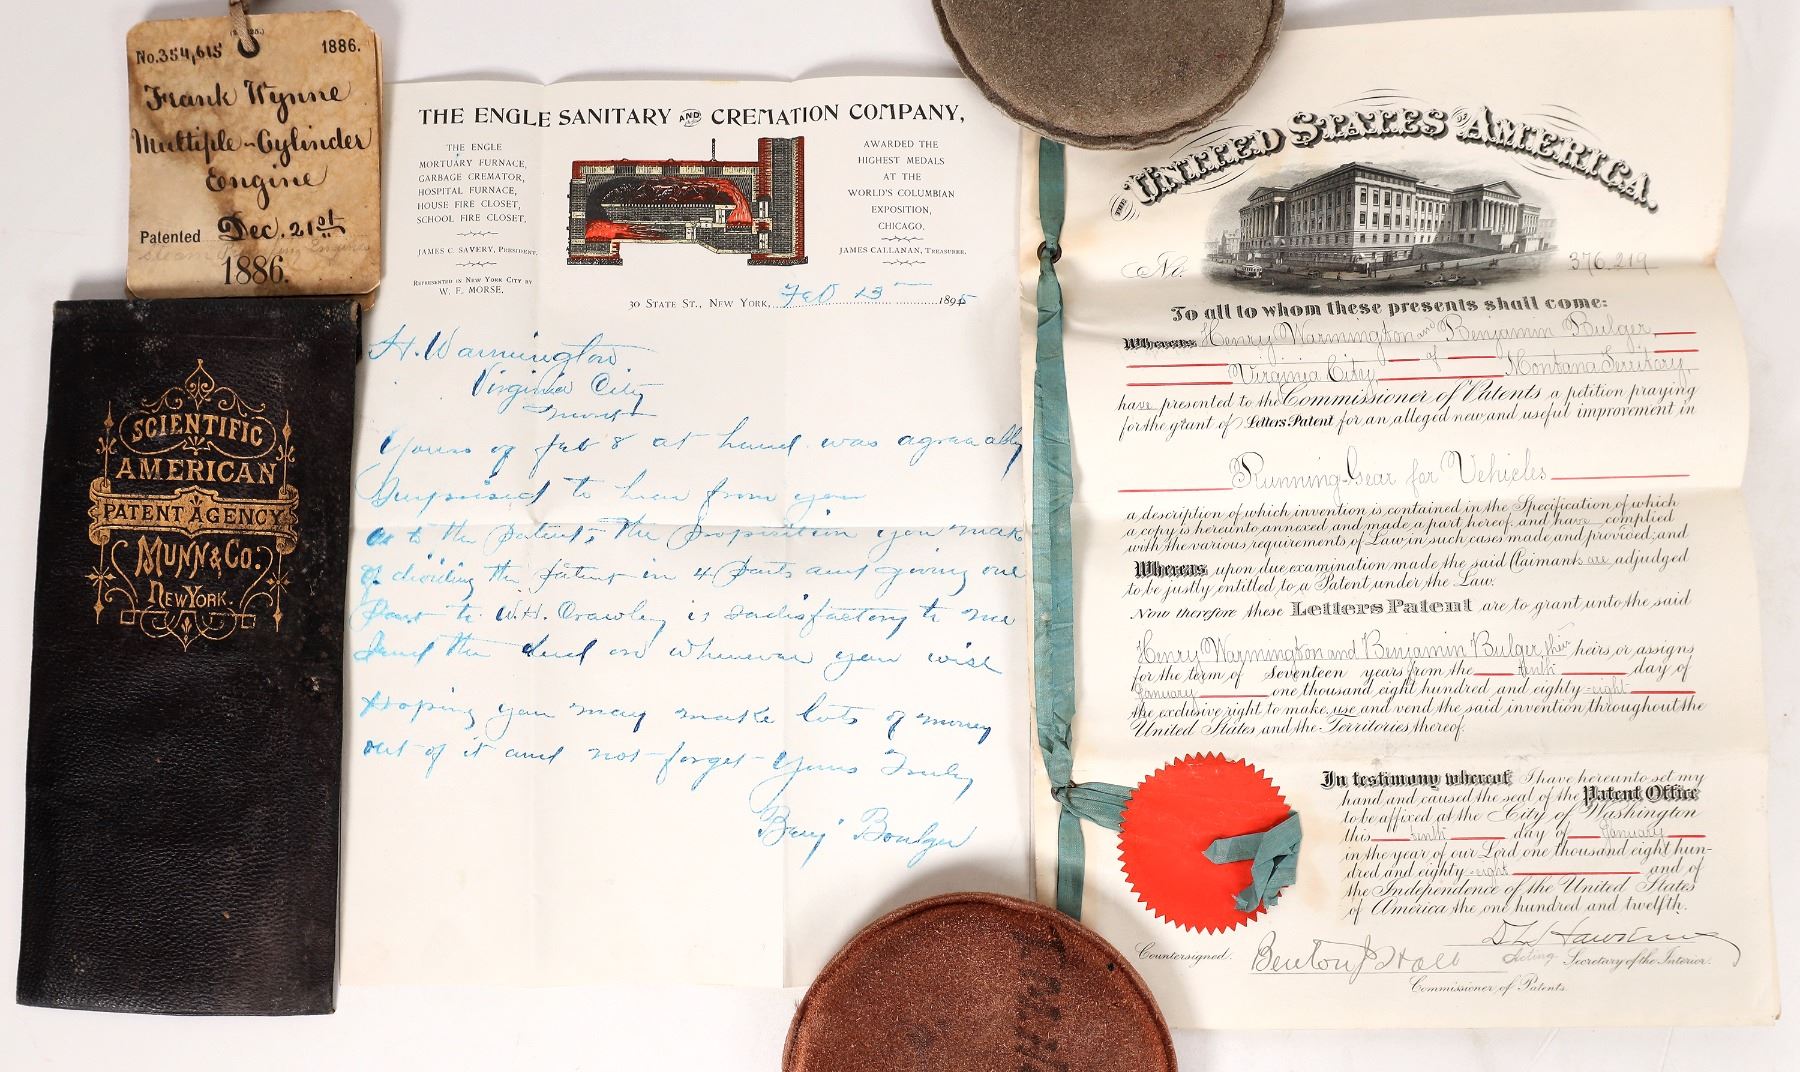 No. 354,615 1886.
Frank Wynne
Multiple-Cylinder
Engine
Patented Dec. 21st
1886.
SCIENTIFIC
AMERICAN
PATENT AGENCY
MUNN & CO.
NEW YORK.
THE ENGLE SANITARY AND CREMATION COMPANY,
THE ENGLE
MORTUARY FURNACE,
GARBAGE CREMATOR,
HOSPITAL FURNACE,
HOUSE FIRE CLOSET,
SCHOOL FIRE CLOSET.
JAMES C. SAVERY, PRESIDENT.
REPRESENTED IN NEW YORK CITY BY
W. F. MORSE.
AWARDED THE
HIGHEST MEDALS
AT THE
WORLD'S COLUMBIAN
EXPOSITION,
CHICAGO.
JAMES CALLANAN, TREASURER.
30 STATE ST., NEW YORK, Feb 13 1895
H. Warmington
Virginia City
Mont
Yours of feb 8 at hand was agreeably
Surprised to hear from you
as to the patent, the proposition you make
of dividing the patent in 4 parts and giving one
Part to W.H. Crawley is sadisfactory to me
Send the deed on whenever you wish
Hoping you may make lots of money
out of it and not forget Yours Truly
Benj Boulger
THE UNITED STATES OF AMERICA.
No. 376,219
To all to whom these presents shall come:
Whereas Henry Warmington and Benjamin Bulger,
Virginia City, of Montana Territory,
have presented to the Commissioner of Patents a petition praying
for the grant of Letters Patent for an alleged new and useful improvement in
Running-Gear for Vehicles
a description of which invention is contained in the Specification of which
a copy is hereunto annexed and made a part hereof, and have complied
with the various requirements of Law in such cases made and provided; and
Whereas upon due examination made the said Claimants are adjudged
to be justly entitled to a Patent under the Law.
Now therefore these Letters Patent are to grant unto the said
Henry Warmington and Benjamin Bulger, their heirs, or assigns
for the term of Seventeen years from the tenth day of
January one thousand eight hundred and eighty-eight
the exclusive right to make, use and vend the said invention throughout the
United States, and the Territories thereof.
In testimony whereof, I have hereunto set my
hand and caused the seal of the Patent Office
to be affixed at the City of Washington
this tenth day of January
in the year of our Lord one thousand eight hun-
dred and eighty-eight and of
the Independence of the United States
of America the one hundred and twelfth.
Countersigned. Benton J Hall
Acting Secretary of the Interior.
Commissioner of Patents.